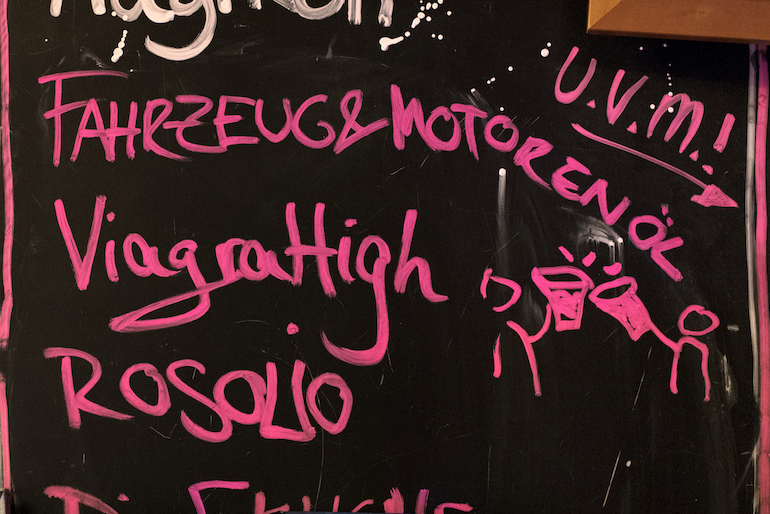 FAHRZEUG & MOTORENÖL
U.V.M.!
ViagraHigh
ROSOLIO